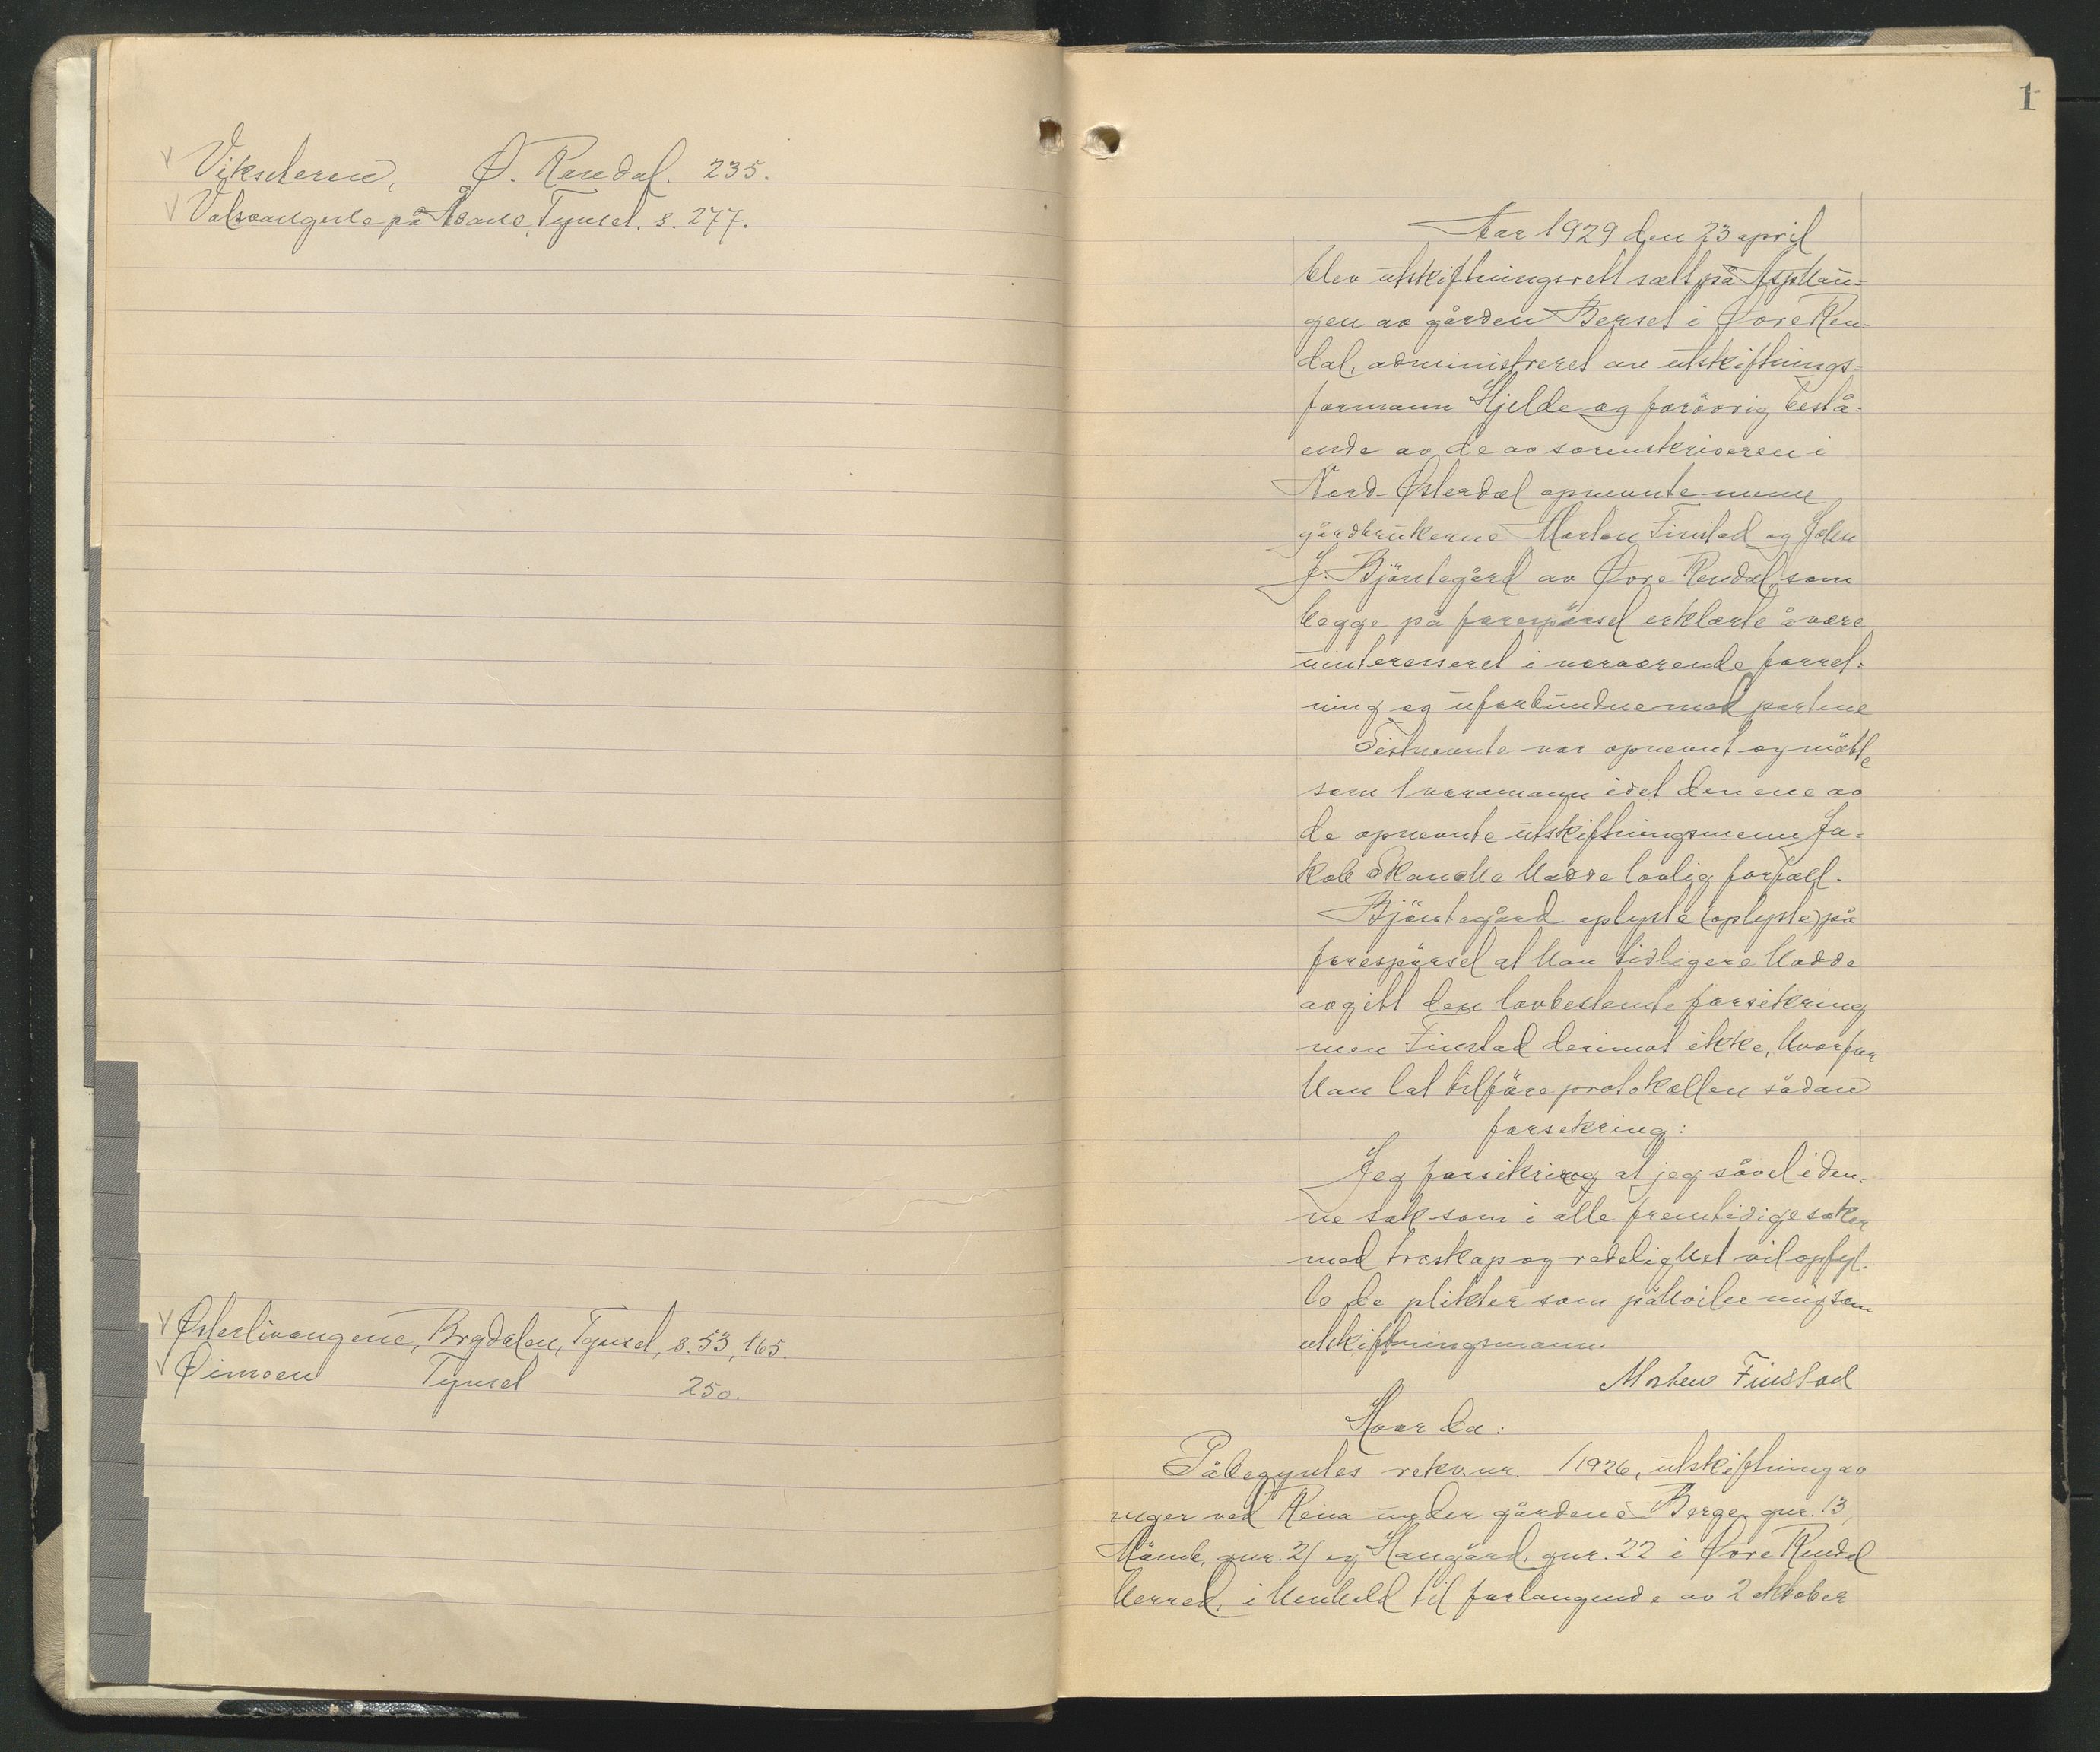 Vikseteren, Ø. Rendal. 235.
Valsvangene på Åsane, Tynset. s. 277.
Østerlivangene, Brydalen, Tynset, s. 53, 165.
Øimoen Tynset 250.
1
Aar 1929 den 23 april
blev utskiftningsrett satt på Asphau=
gen av gården Berset i Øvre Ren=
dal, administreret av utskiftnings=
formann Hjelde og forövrig bestå=
ende av de av sorenskriveren i
Nord-Østerdal opnevnte menn
gårdbrukerne Morten Finstad og John
J. Bjöntegård av Øvre Rendal, som
begge på forespörsel erklærte å være
uinteresseret i nærværende forret=
ning og uforbundne med partene
Sistnevnte var opnevnt og mötte
som 1 varamann idet den ene av
de opnevnte utskiftningsmenn Ja=
kob Skancke hadde lovlig forfall.
Bjöntegård oplyste (oplyste) på
forespörsel at han tidligere hadde
avgitt den lovbestemte forsikring
men Finstad derimot ikke, hvorfor
han lot tilföre protokollen sådan
forsikring:
Jeg forsikring at jeg såvel i den=
ne sak som i alle fremtidige saker
med troskap og redelighet vil opfyl=
le de plikter som påhviler mig som
utskiftningsmann.
Morten Finstad
Hvor da:
Påbegyntes rekv. nr. /1926, utskiftning av
enger ved Rena under gårdene Berger gnr. 13,
gnr. 21 og Haugård, gnr. 22 i Øvre Rendal
herred, i henhold til forlangende av 2 oktober